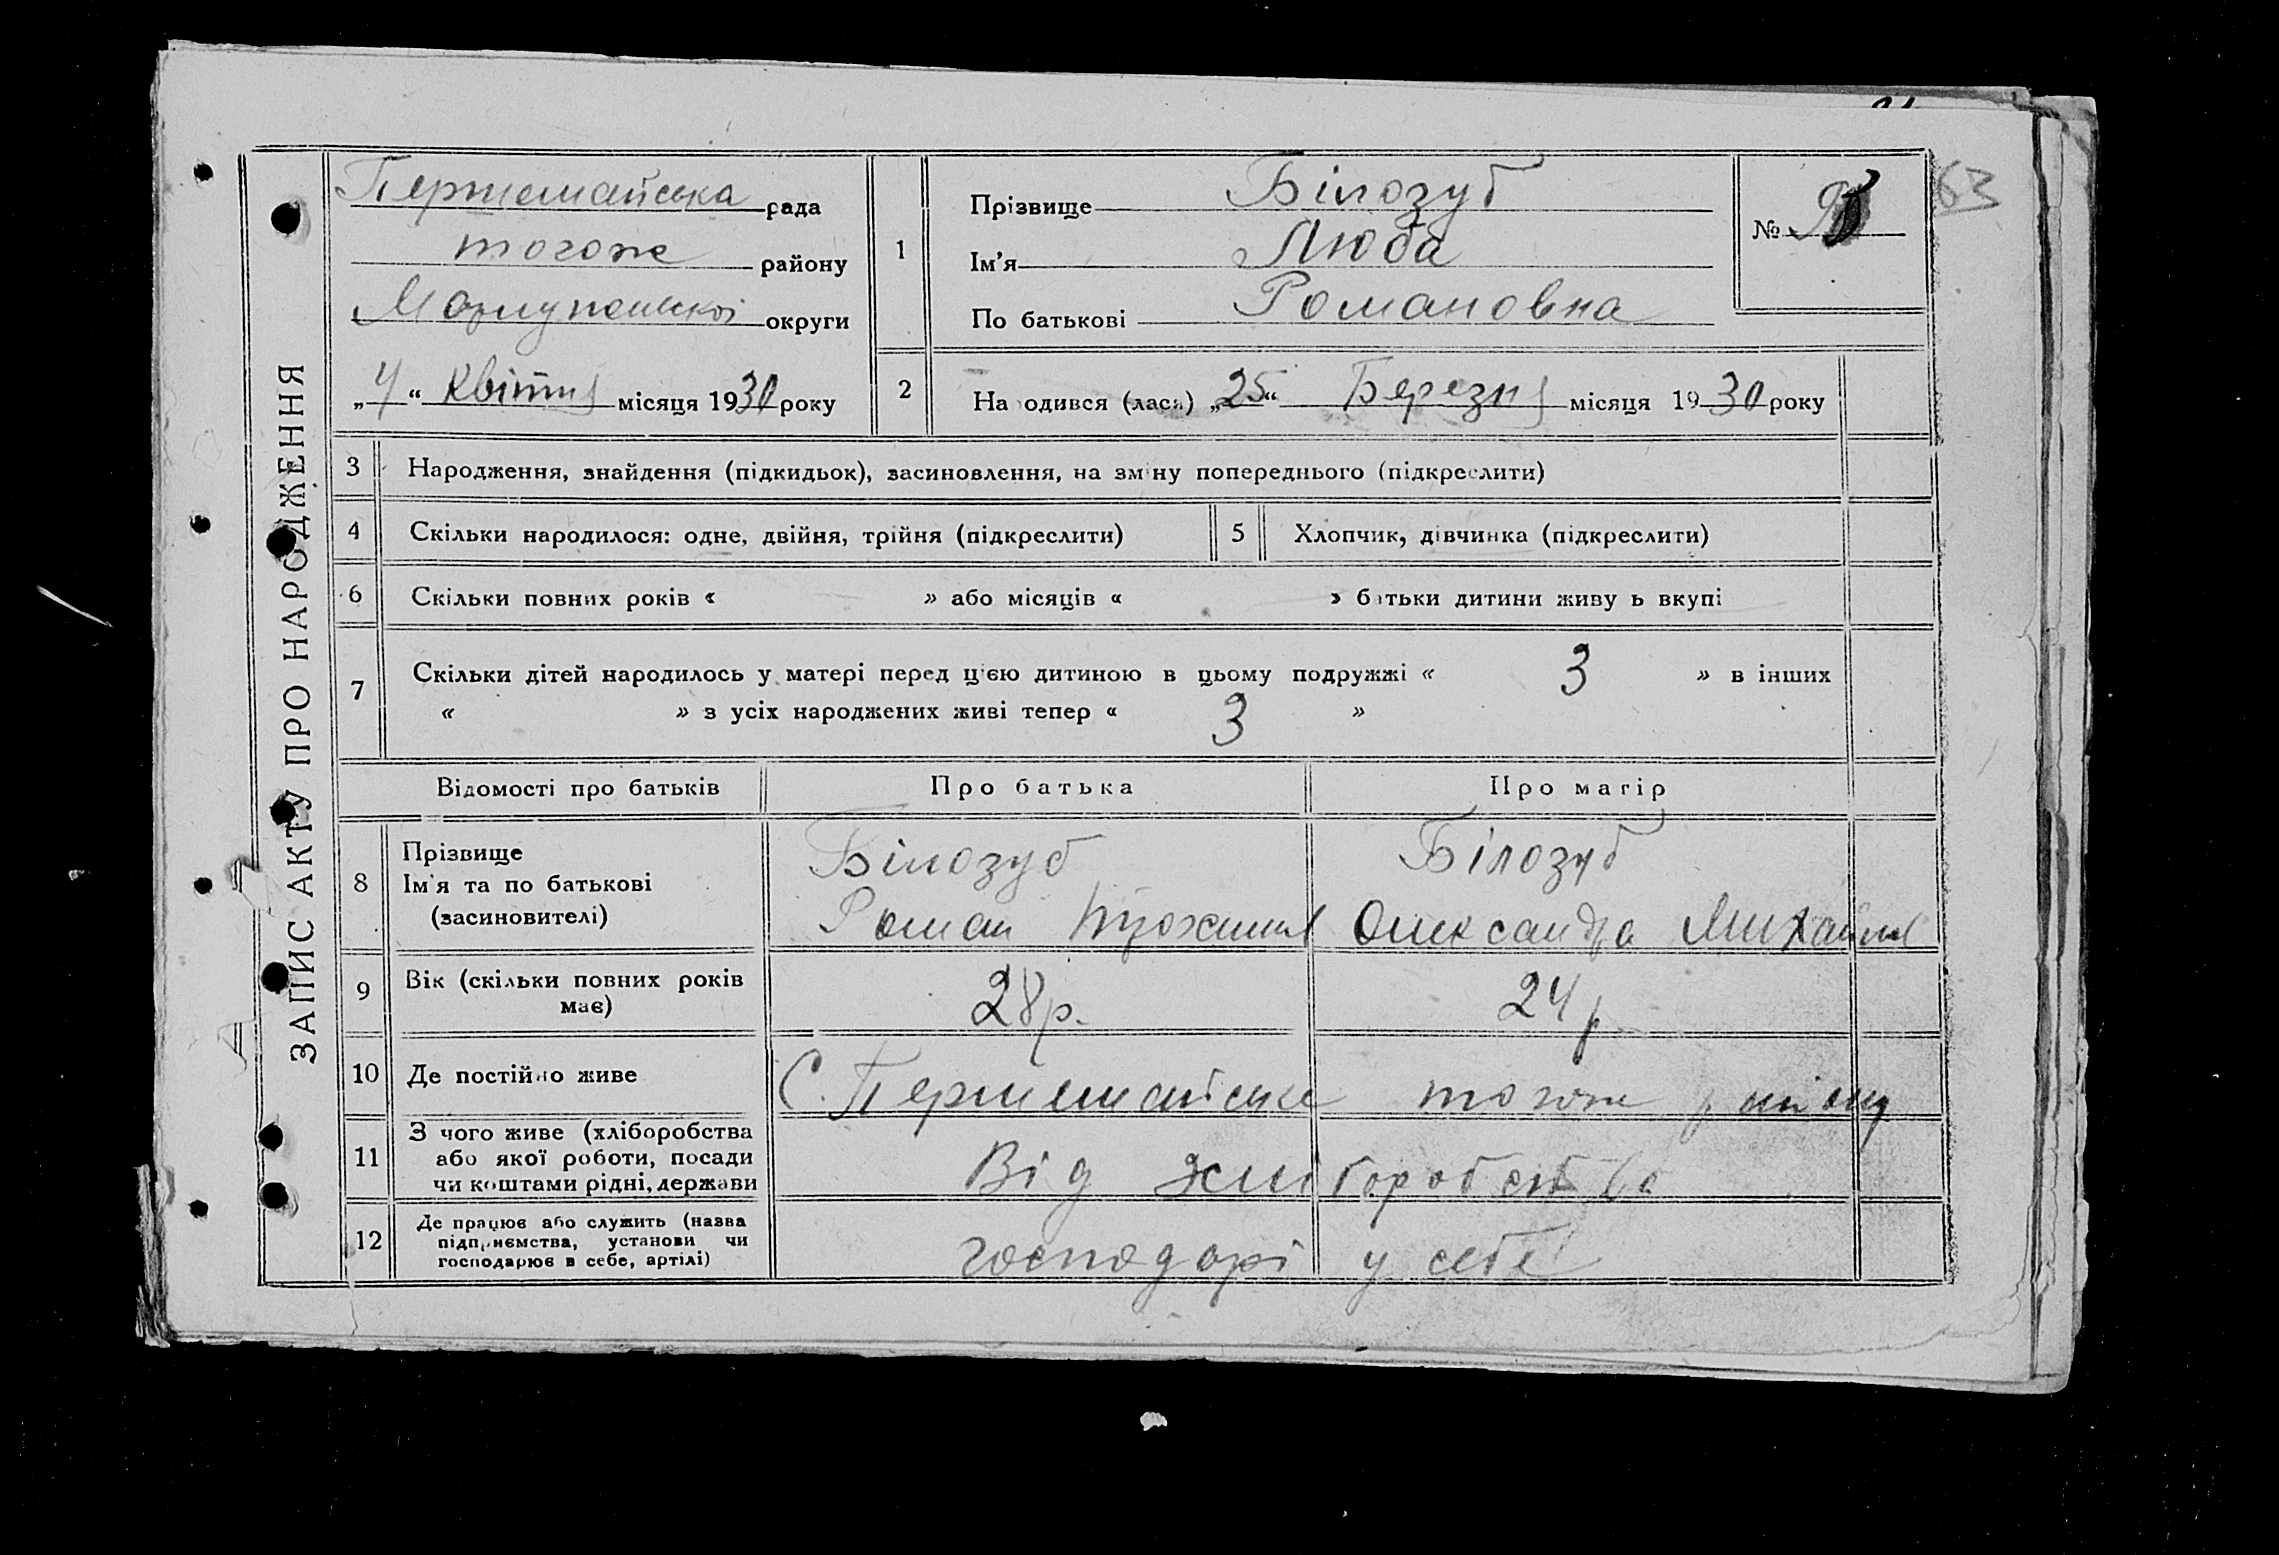 ЗАПИС АКТУ ПРО НАРОДЖЕННЯ
Першемайська рада
тогож району
Маріупольської округи
„4“ Квітня місяця 1930 року
1
Прізвище Білозуб
Ім'я Люба
По батькові Романовна
№
63
2
На одився (лася) „25“ Березня місяця 1930 року
3 Народження, знайдення (підкидьок), засиновлення, на зміну попереднього (підкреслити)
4 Скільки народилося: одне, двійня, трійня (підкреслити)
5 Хлопчик, дівчинка (підкреслити)
6 Скільки повних років « » або місяців « » батьки дитини живу ь вкупі
7 Скільки дітей народилось у матері перед цією дитиною в цьому подружжі « 3 » в інших
« » з усіх народжених живі тепер « 3 »
Відомості про батьків Про батька Про матір
8 Прізвище
Ім'я та по батькові
(засиновителі)
Білозуб
Роман
Білозуб
Олександра Михайлів
9 Вік (скільки повних років
має)
28 р. 24 р
10 Де постійно живе С. Першемайське тогож району
11 З чого живе (хліборобства
або якої роботи, посади
чи коштами рідні, держави
Від хліборобства
12 Де працює або служить (назва
підприємства, установи чи
господарює в себе, артілі)
господарі у себе